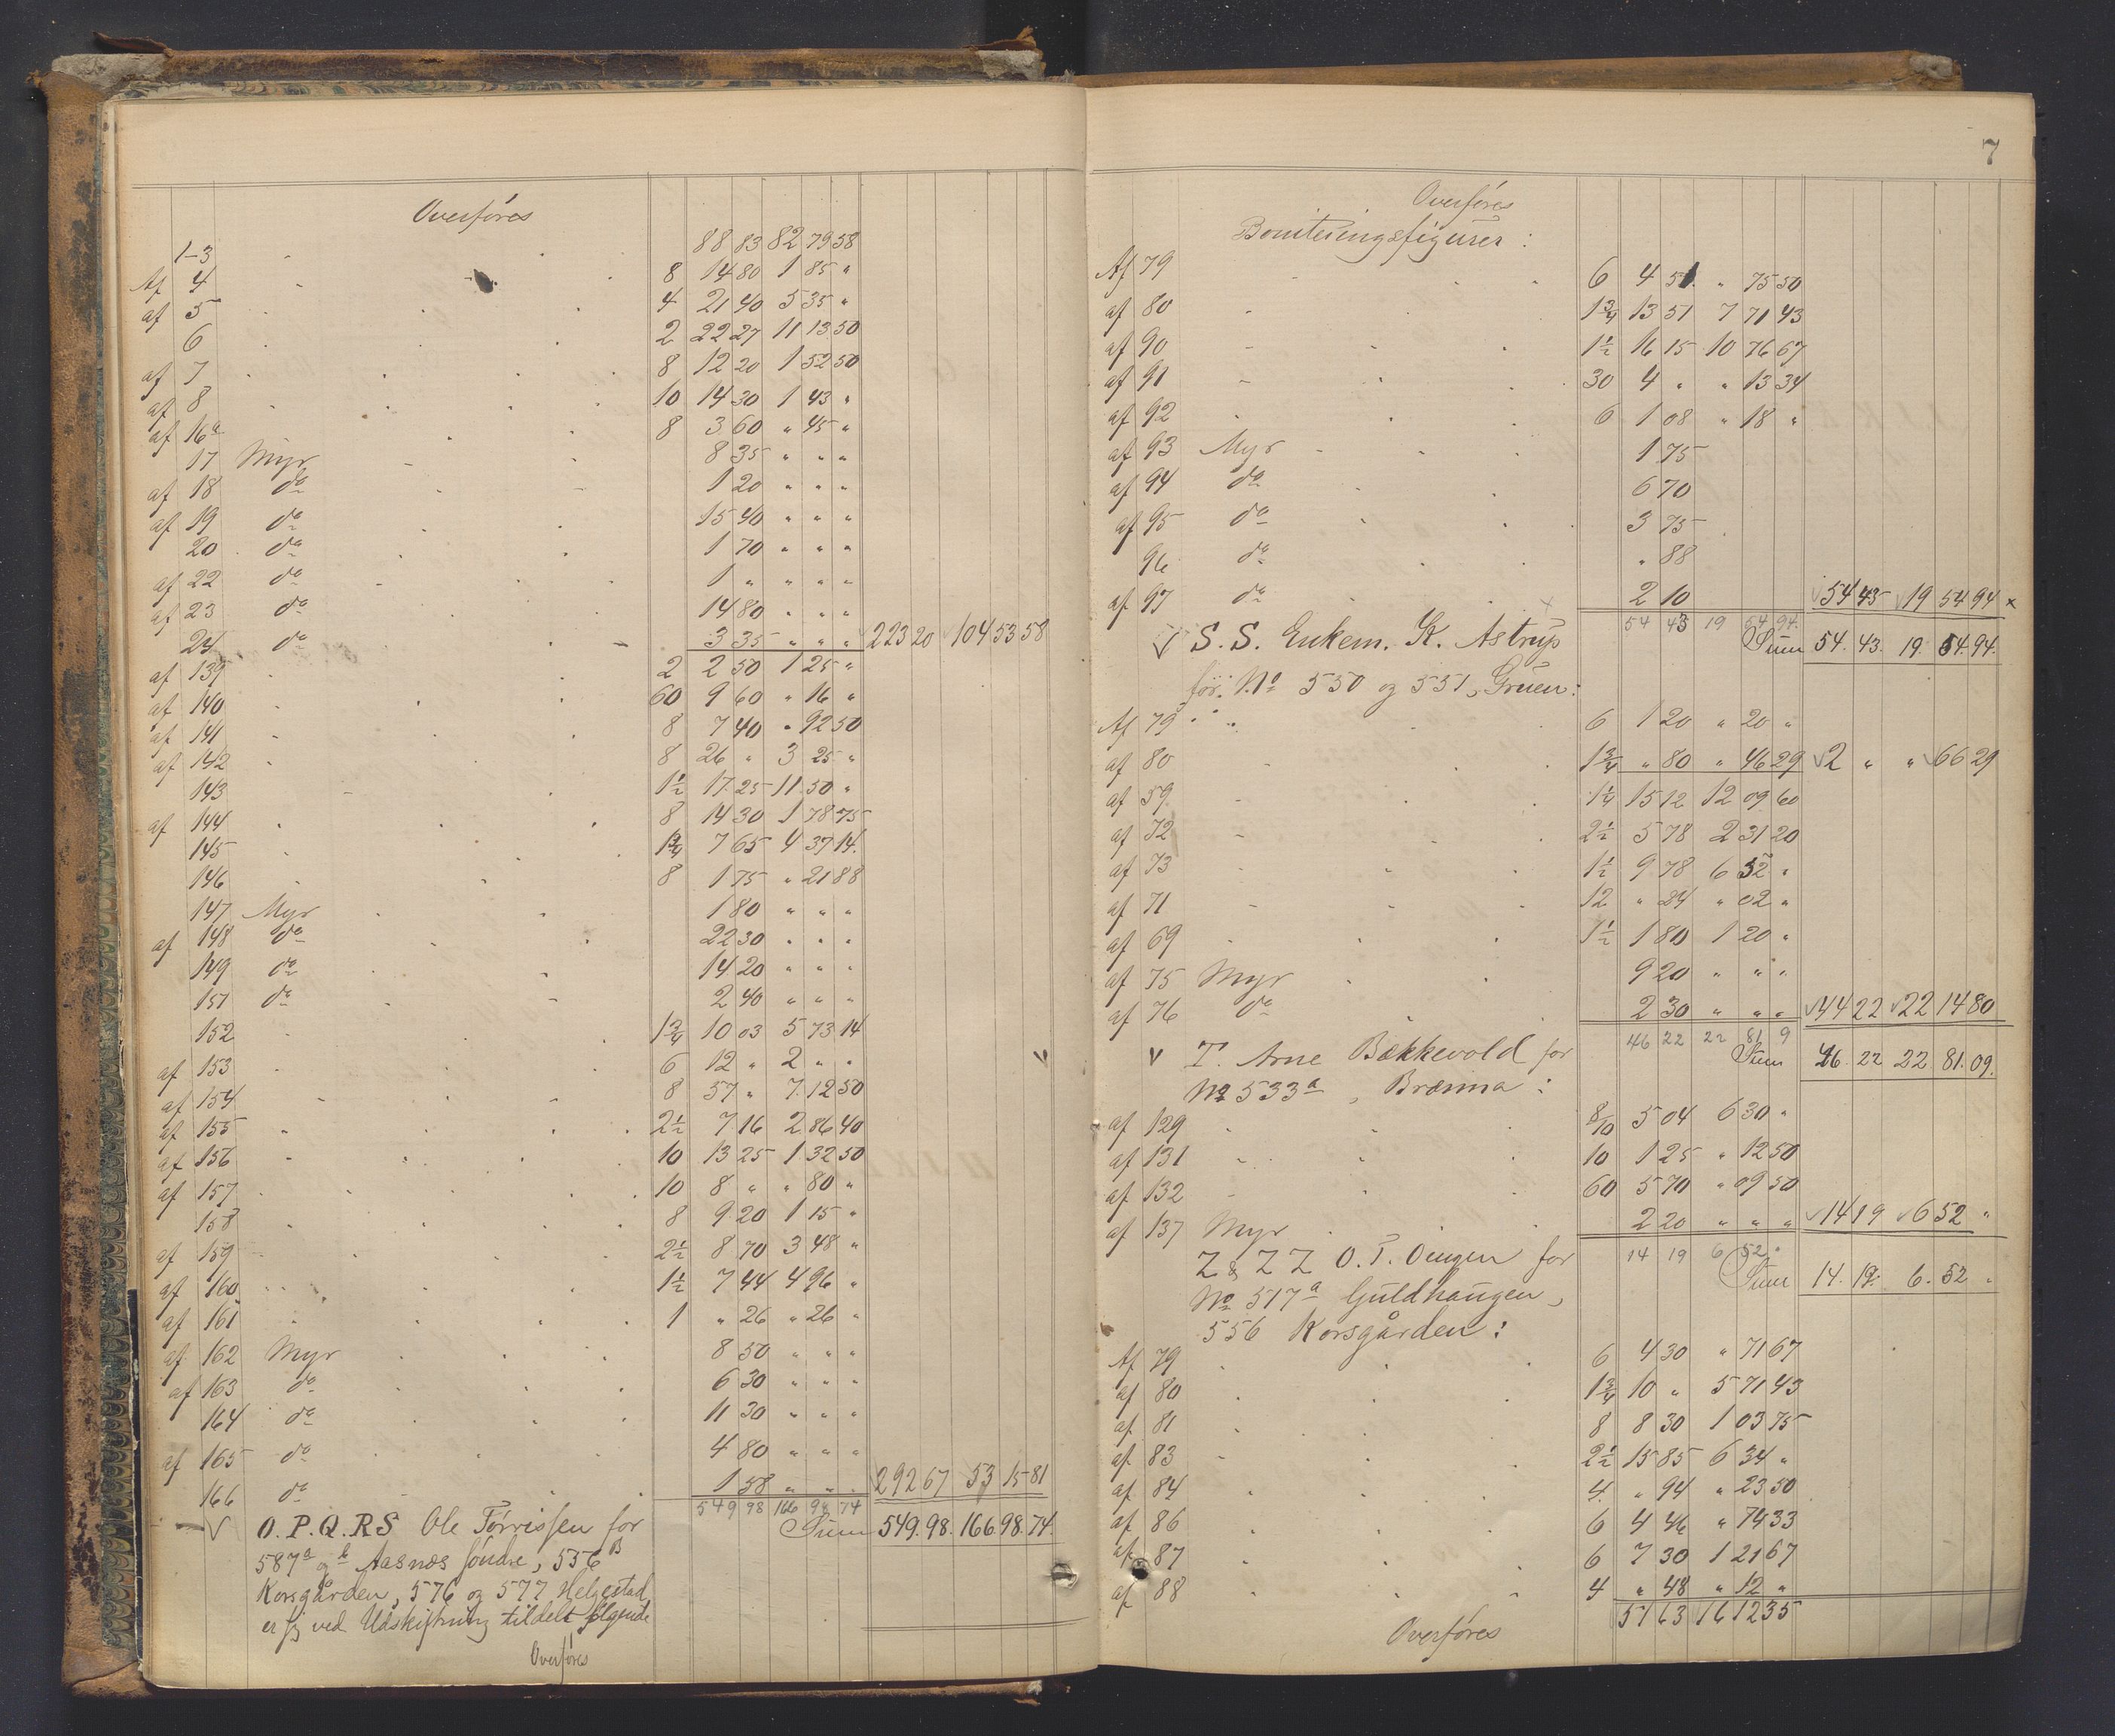 Overføres
1-3 88 83 82 79 58
Af 4 8 14 80 1 85 "
af 5 4 21 40 5 35 "
6 2 22 27 11 13 50
af 7 8 12 20 1 52 50
af 8 10 14 30 1 43 "
af 16a 8 3 60 " 45 "
17 Myr 8 35 " " "
af 18 do 1 20 " " "
af 19 do 15 40 " " "
20 do 1 70 " " "
af 22 do 1 " " " "
af 23 do 14 80 " " "
24 do 3 35 " " " 223 20 104 53 58
af 139 2 2 50 1 25 "
af 140 60 9 60 " 16 "
af 141 8 7 40 " 92 50
af 142 8 26 " 3 25 "
143 1½ 17 25 11 50 "
af 144 8 14 30 1 78 75
145 1¾ 7 65 4 37 14
146 8 1 75 " 21 88
147 Myr 1 80 " " "
af 148 do 22 30 " " "
149 do 14 20 " " "
151 do 2 40 " " "
152 1¾ 10 03 5 73 14
af 153 6 12 " 2 " " v
af 154 8 57 " 7 12 50
af 155 2½ 7 16 2 86 40
af 156 10 13 25 1 32 50
af 157 10 8 " " 80 "
158 8 9 20 1 15 "
af 159 2½ 8 70 3 48 "
af 160 1½ 7 44 4 96 "
af 161 1 " 26 " 26 "
af 162 Myr 8 50 " " "
af 163 do 6 30 " " "
164 do 11 30 " " "
af 165 do 4 80 " " "
166 do 1 58 " " " 292 67 53 15 81
549 98 166 98 74
O.P.Q.R.S Ole Tørrissen for Sum 549.98. 166.98.74.
587a og b Aasnæs søndre, 556B
Korsgården, 576 og 577 Helgestad,
er ved Udskiftning tildelt følgende
Overføres
7
Overføres
Boniteringsfigurer:
Af 79 6 4 51 " 75 50
af 80 1¾ 13 51 7 71 43
af 90 1½ 16 15 10 76 67
af 91 30 4 " " 13 34
af 92 6 1 08 " 18 "
af 93 Myr 1 75
af 94 do 6 70
af 95 do 3 75
96 do " 88
af 97 do 2 10 54 43 19 54 94 x
54 43 19 54 94
v S.S. Enkem. K. Astrup Sum 54. 43. 19. 54. 94.
for No 550 og 551, Gruen:
Af 79 6 1 20 " 20 "
af 80 1¾ " 80 " 46 29 2 " " 66 29
af 59 1¼ 15 12 12 09 60
af 72 2½ 5 78 2 31 20
af 73 1½ 9 78 6 52 "
af 71 12 " 24 " 02 "
af 69 1½ 1 80 1 20 "
af 75 Myr 9 20 " " "
af 76 do 2 30 " " " 44 22 22 14 80
46 22 22 81 9
v T. Arne Bækkevold for Sum 46. 22 22. 81. 09.
No 533a, Brænna:
af 129 8/10 5 04 6 30 "
af 131 10 1 25 " 12 50
af 132 60 5 70 " 09 50
af 137 Myr 2 20 " " " 14 19 6 52 "
14 19 6 52 "
Z & ZZ O.T. Oengen for Sum 14. 19. 6. 52 "
No 517a Guldhaugen,
556 Korsgården:
Af 79 6 4 30 " 71 67
af 80 1¾ 10 " 5 71 43
af 81 8 8 30 1 03 75
af 83 2½ 15 85 6 34 "
af 84 4 " 94 " 23 50
af 86 6 4 46 " 74 33
af 87 6 7 30 1 21 67
af 88 4 " 48 " 12 "
51 63 16 12 35
Overføres